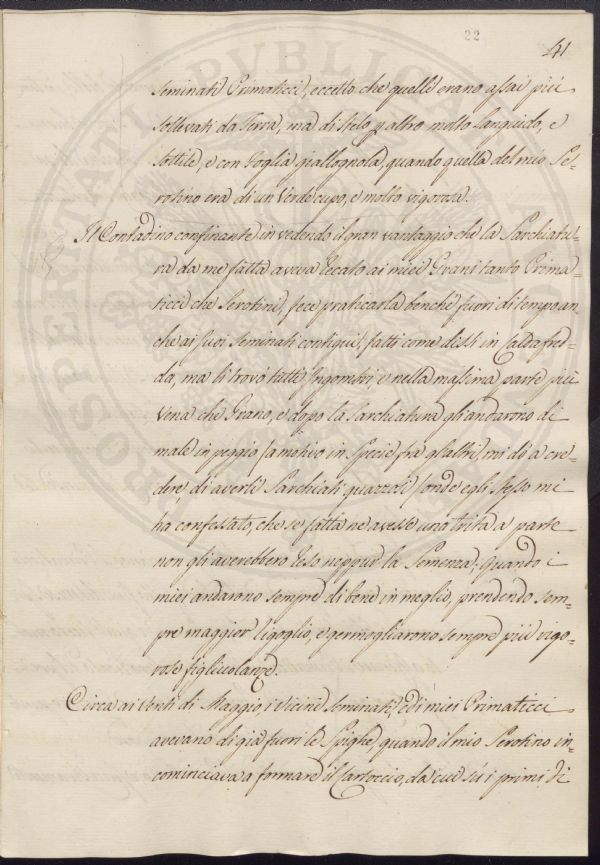 22
41
seminati Primaticci, eccetto che quelli erano assai più
sollevati da Terra, ma di stelo p altro molto Languido, e
sottile, e con foglia giallognola, quando quella del mio Se-
rotino era di un Verde cupo, e molto vigorosa.
Il Contadino confinante in vedendo il gran vantaggio che la Sarchiatu-
ra da me fatta aveva recato ai miei Grani tanto Prima-
ticci che Serotini, fece praticarla benchè fuori di tempo an
che ai suoi seminati contigui, fatti come dissi in Calda fred-
da, ma li trovò tutti Ingombri e nella massima parte più
Vena che Grano, e dopo la Sarchiatura gli andarono di
male in peggio (a motivo in Specie fra gl'altri mi do a cre-
dere di averli Sarchiati guazzosi) onde egli stesso mi
ha confessato, che se fatta ne avesse una trita a parte
non gli averebbero reso neppur la Semenza; Quando i
miei andarono sempre di bene in meglio, prendendo sem-
pre maggior rigoglio, e germogliarono sempre più vigo-
rose figliuolanze.
Circa ai Venti di Maggio, i Vicini seminati, ed i miei Primaticci
avevano di già fuori le Spighe, quando il mio Serotino in-
cominciava a formare il Cartoccio, da cui sù i primi di
PROSPERITATI PVBLICAE